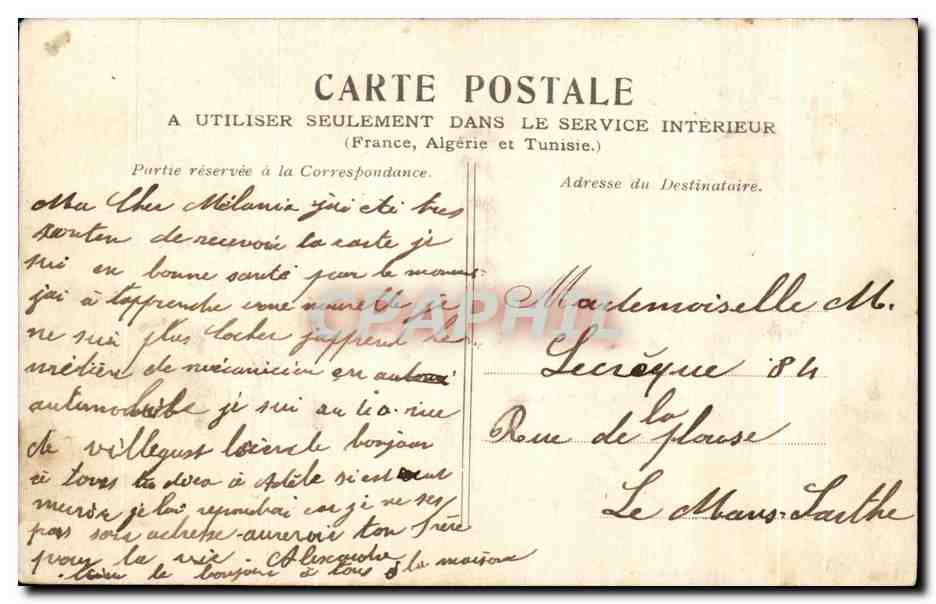 CARTE POSTALE
A UTILISER SEULEMENT DANS LE SERVICE INTERIEUR
(France, Algérie et Tunisie.)
Partie réservée à la Correspondance.
Ma Cher Mélania jai été tres
de recevoir ta carte je
sui en bonne santé pour le
jai à tapprendre une nouvelle je
ne sui plus jupprend le
métier de mécanicien en
automobile je sui au rue
de le bonjour
à tous tu dira à Adèle si
je lui repondrai car je ne ses
pas son adresse aurevoir ton frère
pour la vie Alexandre
le bonjour à tous à la maison
Adresse du Destinataire.
Mademoiselle M.
Lecrêque 84
Rue de la plouse
Le Mans-Sarthe
CPAPHIL